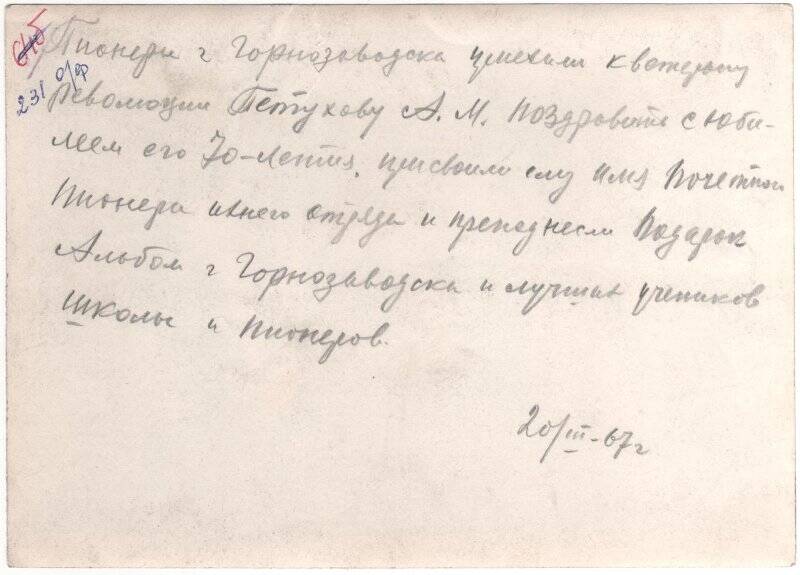 645
231 о/ф
Пионери г Горнозаводска приехали к ветерану
Революции Петухову А. М. поздравить с юби-
леем его 70-летия, присвоили ему имя Почетный
Пионери ихнего отряда и преподнесли Подарок
Альбом г Горнозаводска и лучших учеников
Школы и Пионеров.
20/III-67г